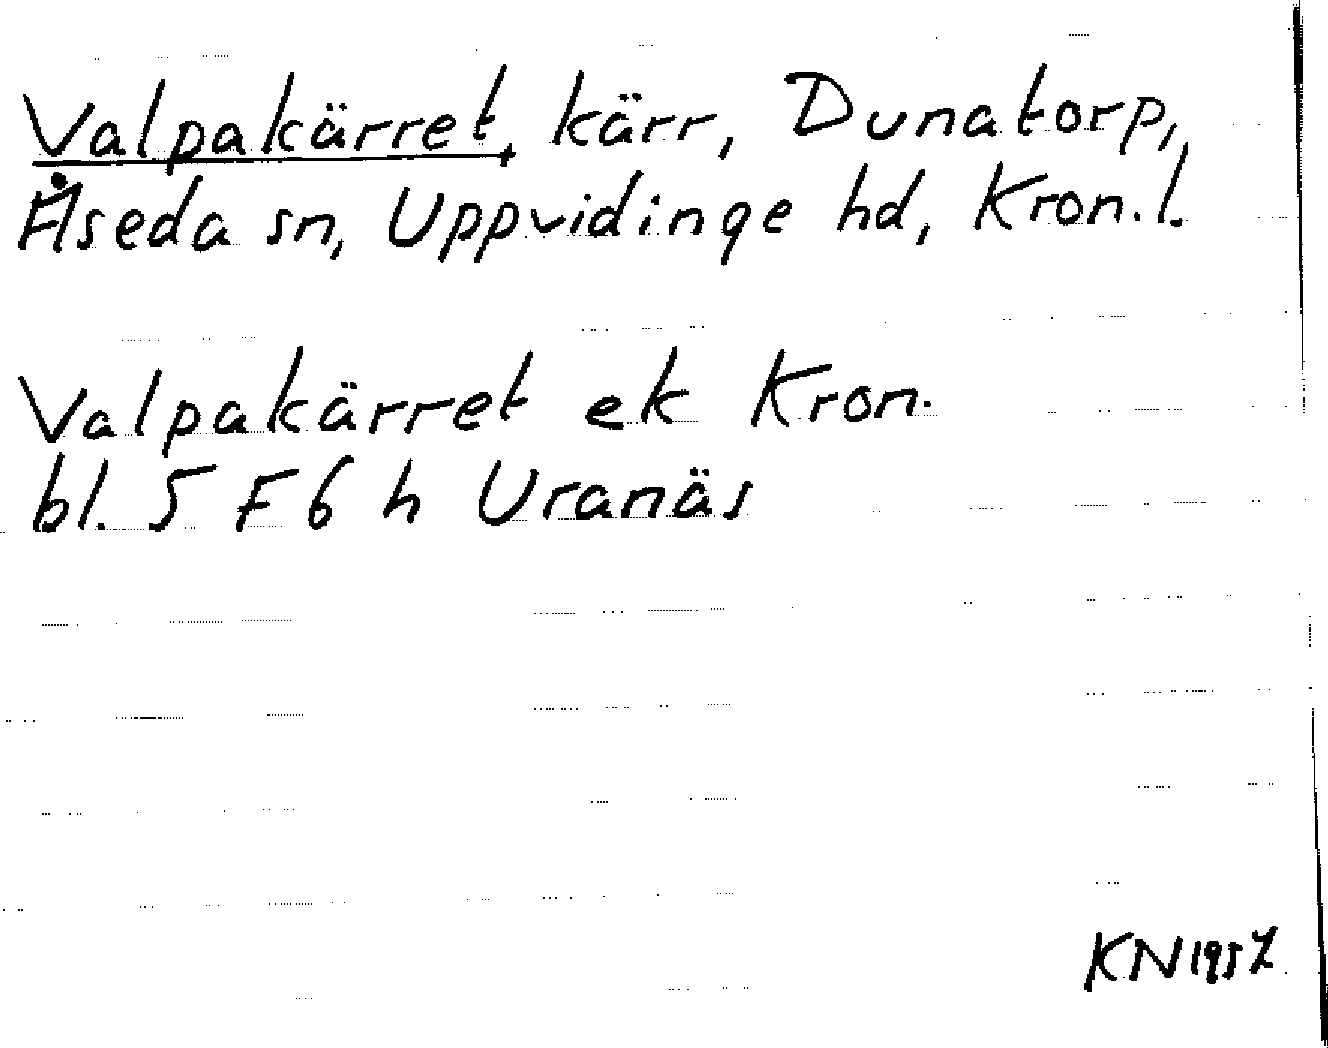 Valpakärret, kärr, Dunatorp,
Åseda sn, Uppvidinge hd, Kron.l.
Valpakärret ek Kron.
bl. 5 F 6 h Uranäs
KN 1957